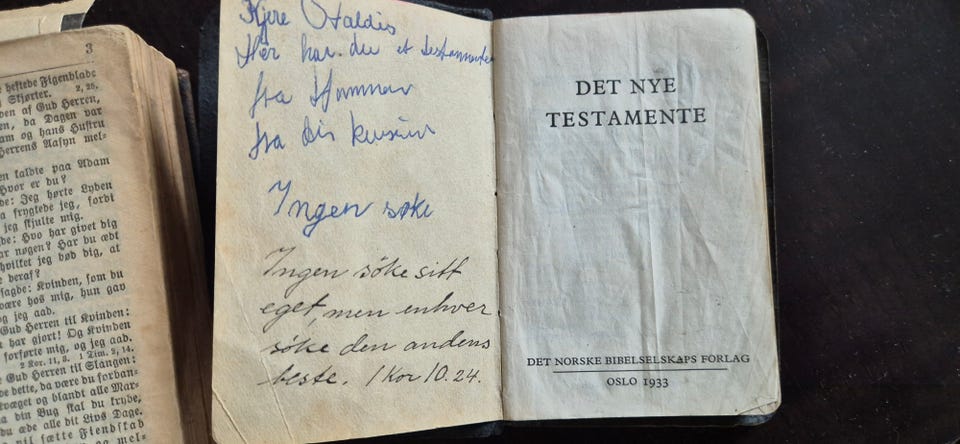 3
heftede Figenblade
Skjørter. 2, 25.
den af Gud Herren,
en, da Dagen var
am og hans Hustru
Herrens Aasyn mel-
en kaldte paa Adam
Hvor er du?
de: Jeg hørte Lyden
frygtede jeg, fordi
jeg skjulte mig.
de: Hvo har givet dig
ar nøgen? Har du ædt
hvilket jeg bød dig, at
deraf?
sagde: Kvinden, som du
være hos mig, hun gav
og jeg aad.
Gud Herren til Kvinden:
har gjort! Og Kvinden
forførte mig, og jeg aad.
2 Kor. 11, 3. 1 Tim. 2, 14.
Gud Herren til Slangen:
dette, da være du forban-
Kvæget og blandt alle Mar-
din Bug skal du krybe,
du æde alle dit Livs Dage.
vil sætte Fiendskab
og mel-
Kjere Haldis
Her har du et testamente
fra
fra din kusine
Ingen søke
Ingen söke sitt
eget, men enhver
söke den andens
beste. 1 Kor 10. 24.
DET NYE
TESTAMENTE
DET NORSKE BIBELSELSKAPS FORLAG
OSLO 1933